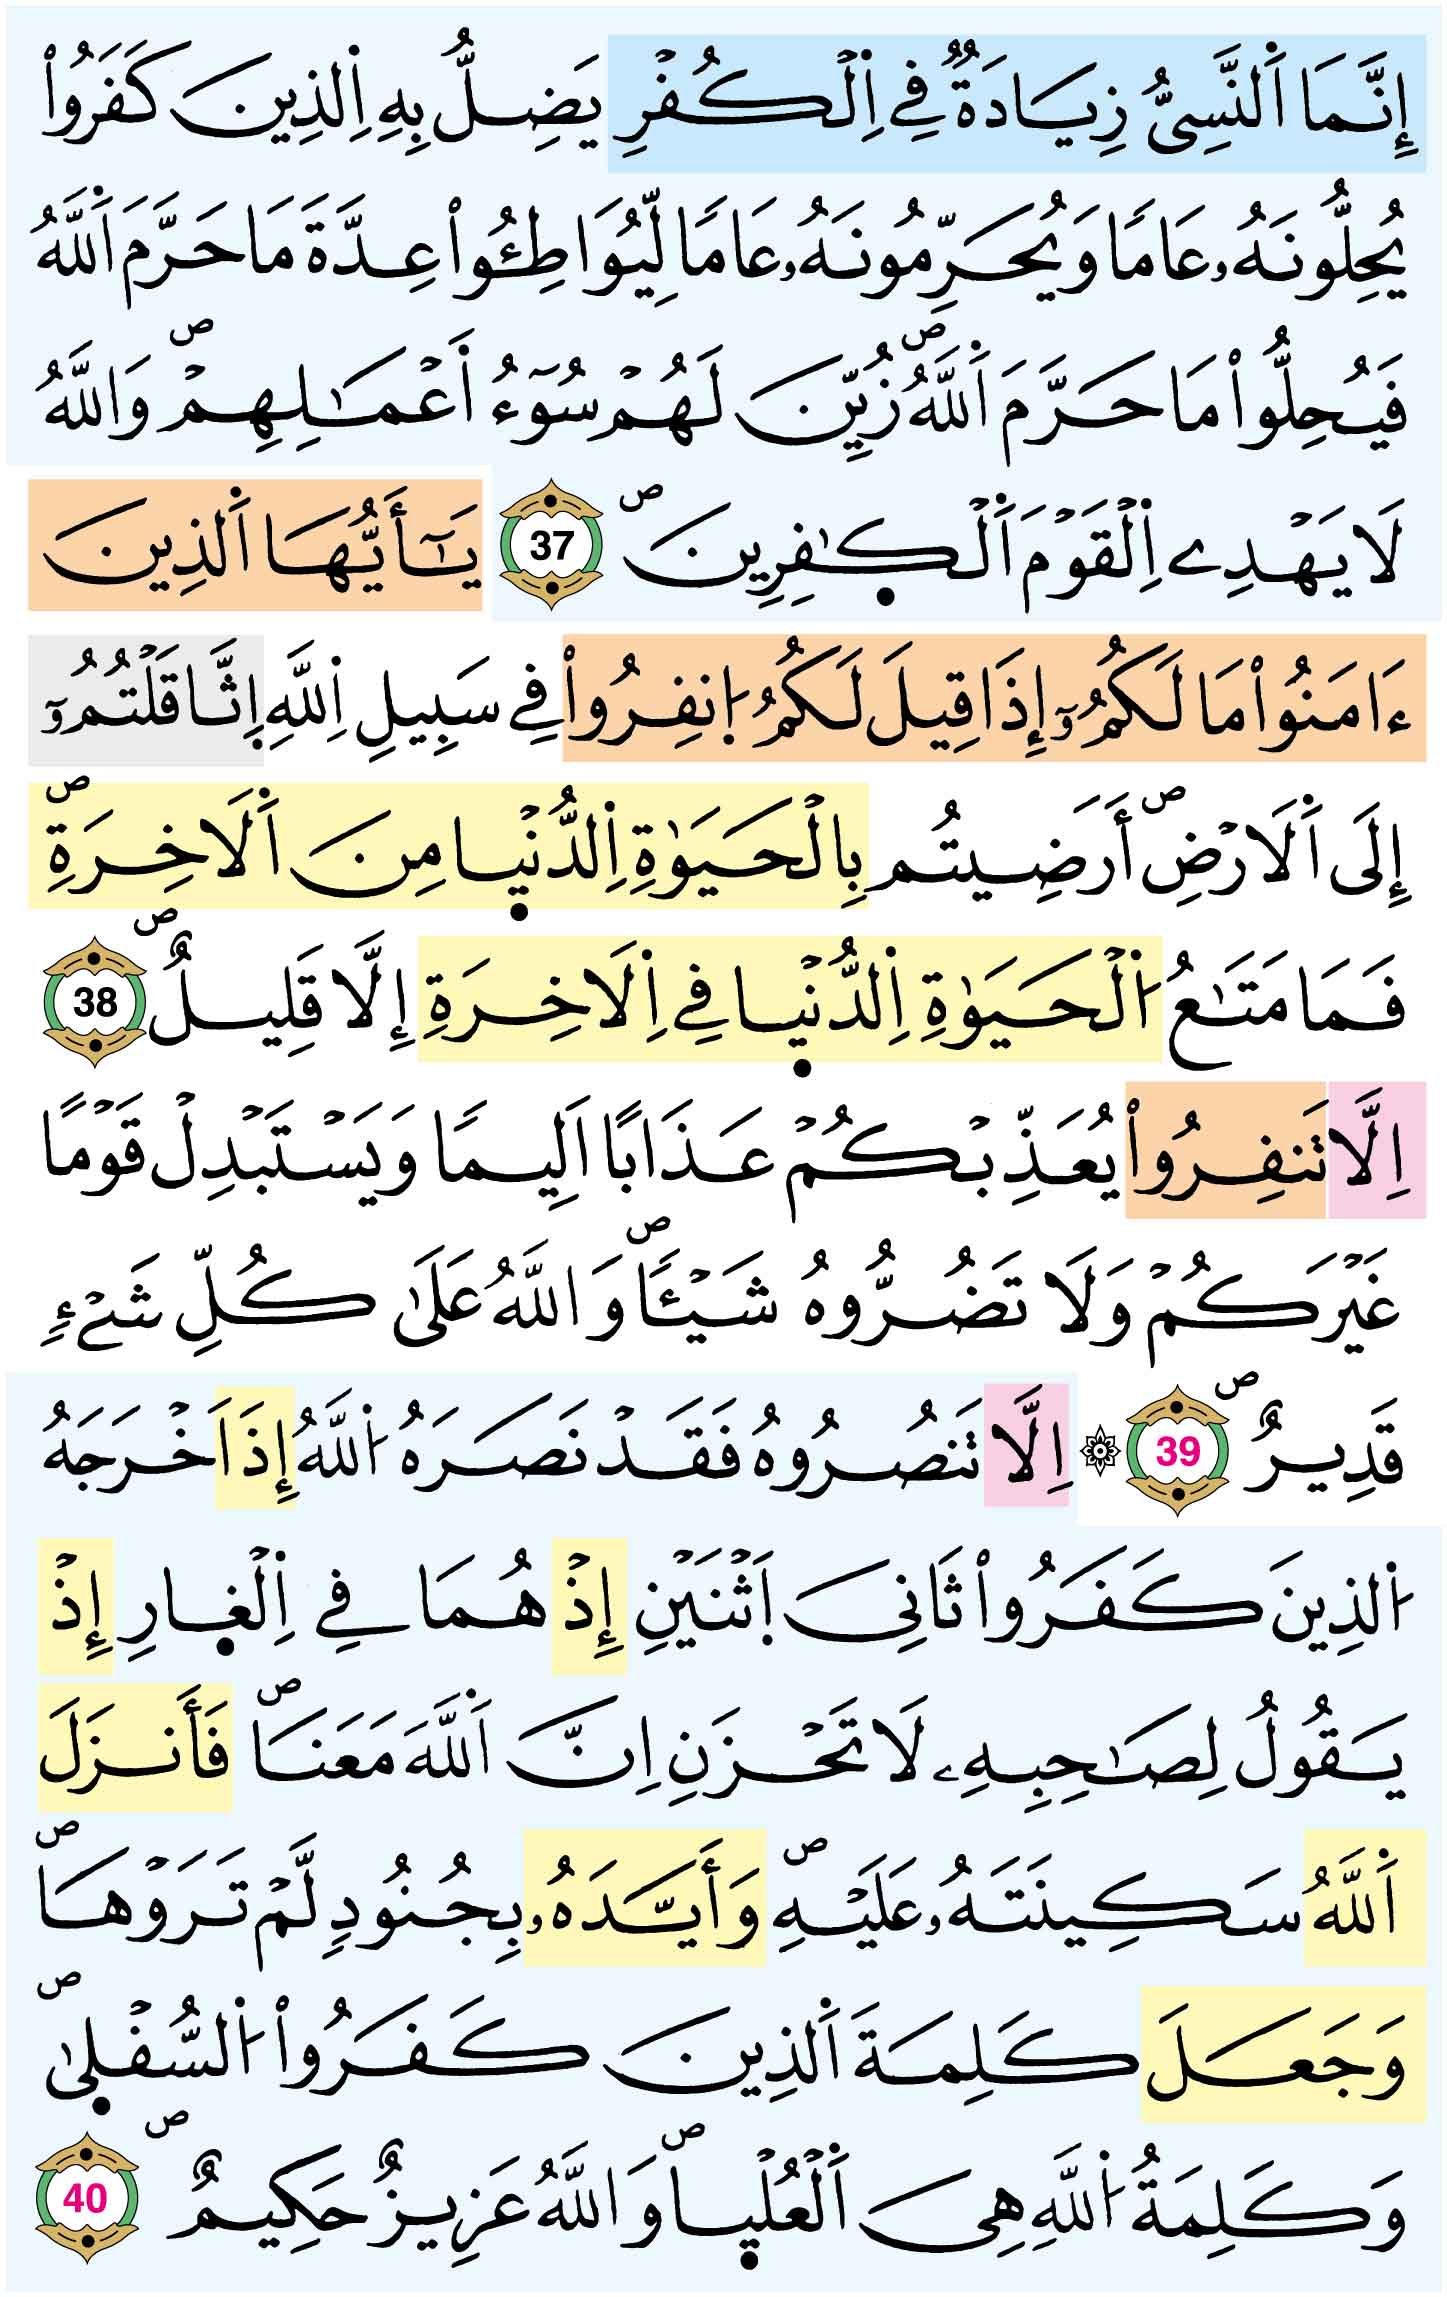 إِنَّمَا اَ۬لنَّسِيُّ زِيَادَةٞ فِے اِ۬لْكُفْرِ يَضِلُّ بِهِ اِ۬لذِينَ كَفَرُواْ
يُحِلُّونَهُۥ عَاماٗ وَيُحَرِّمُونَهُۥ عَاماٗ لِّيُوَاطِـُٔواْ عِدَّةَ مَا حَرَّمَ اَ۬للَّهُ
فَيُحِلُّواْ مَا حَرَّمَ اَ۬للَّهُۖ زُيِّنَ لَهُمْ سُوٓءُ اَعْمَٰلِهِمْۖ وَاللَّهُ
لَا يَهْدِے اِ۬لْقَوْمَ اَ۬لْكٰ۪فِرِينَۖ 37 يَٰٓأَيُّهَا اَ۬لذِينَ
ءَامَنُواْ مَا لَكُمُۥٓ إِذَا قِيلَ لَكُمُ اُ۪نفِرُواْ فِے سَبِيلِ اِ۬للَّهِ اِ۪ثَّاقَلْتُمُۥٓ
إِلَى اَ۬لَارْضِۖ أَرَضِيتُم بِالْحَيَوٰةِ اِ۬لدُّنْي۪ا مِنَ اَ۬لَاخِرَةِۖ
فَمَا مَتَٰعُ اُ۬لْحَيَوٰةِ اِ۬لدُّنْي۪ا فِے اِ۬لَاخِرَةِ إِلَّا قَلِيلٌۖ 38
اِلَّا تَنفِرُواْ يُعَذِّبْكُمْ عَذَاباً اَلِيماٗ وَيَسْتَبْدِلْ قَوْماً
غَيْرَكُمْ وَلَا تَضُرُّوهُ شَيْـٔاٗۖ وَاللَّهُ عَلَىٰ كُلِّ شَےْءٖ
قَدِيرٌۖ 39 ۞ اِلَّا تَنصُرُوهُ فَقَدْ نَصَرَهُ اُ۬للَّهُ إِذَ اَخْرَجَهُ
اُ۬لذِينَ كَفَرُواْ ثَانِيَ اَ۪ثْنَيْنِ إِذْ هُمَا فِے اِ۬لْغ۪ارِ إِذْ
يَقُولُ لِصَٰحِبِهِۦ لَا تَحْزَنِ اِنَّ اَ۬للَّهَ مَعَنَاۖ فَأَنزَلَ
اَ۬للَّهُ سَكِينَتَهُۥ عَلَيْهِۖ وَأَيَّدَهُۥ بِجُنُودٖ لَّمْ تَرَوْهَاۖ
وَجَعَلَ كَلِمَةَ اَ۬لذِينَ كَفَرُواْ اُ۬لسُّفْل۪ىٰۖ
وَكَلِمَةُ اُ۬للَّهِ هِيَ اَ۬لْعُلْي۪اۖ وَاللَّهُ عَزِيزٌ حَكِيمٌۖ 40